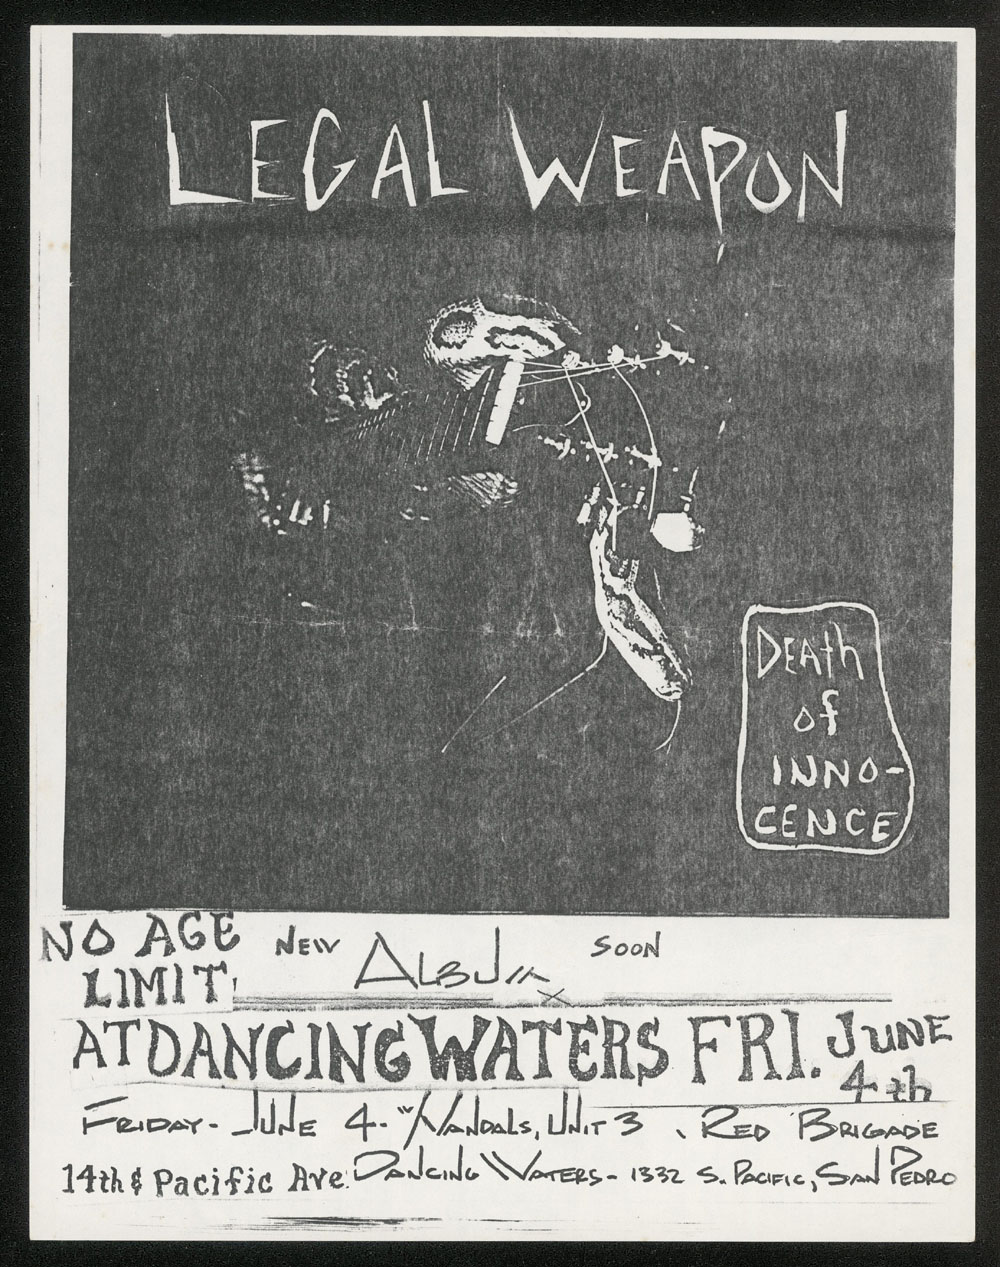 LEGAL WEAPON
DEAth
of
INNO-
CENCE
NO AGE
LIMIT
NEW ALBUM SOON
AT DANCING WATERS FRI. JUNE
4th
FRIDAY - JUNE 4 - "VANDALS, UNIT 3, RED BRIGADE
14th & Pacific Ave. DANCING WATERS - 1332 S. PACIFIC, SAN PEDRO